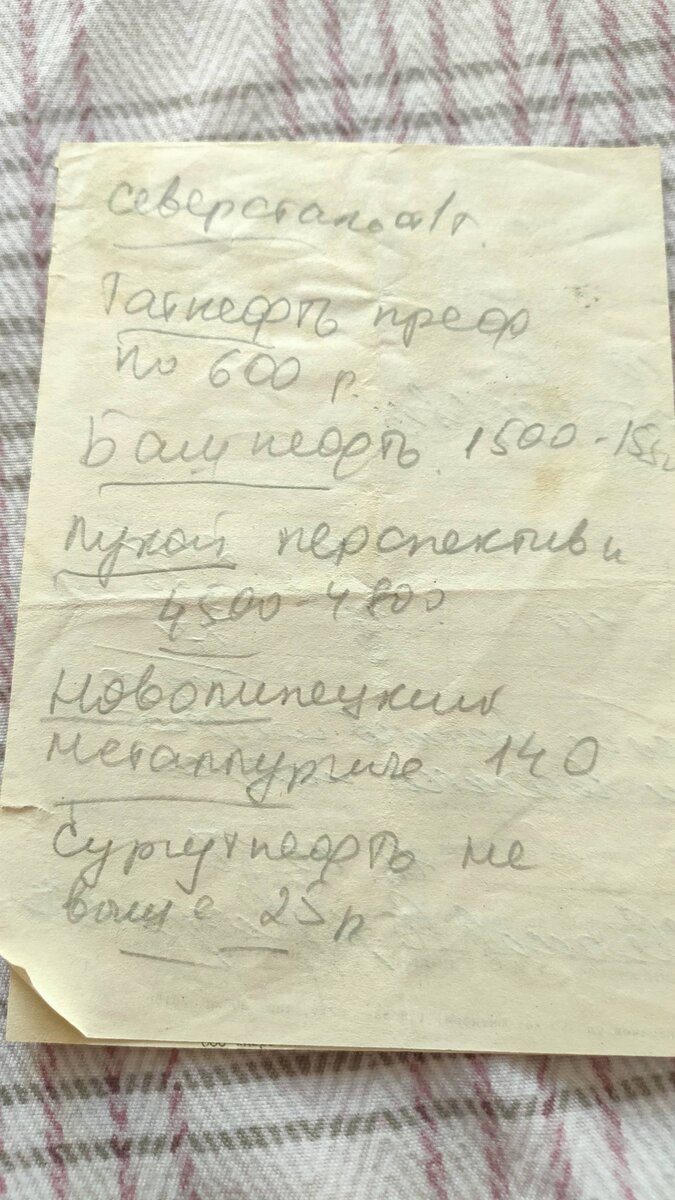 Северсталь а/т.
Татнефть преф
по 600 р.
Башнефть 1500-1550
Лукой перспектив и
4500-4800
Новолипецкий
металлургиче 140
Сургутнефть не
выше 25 р